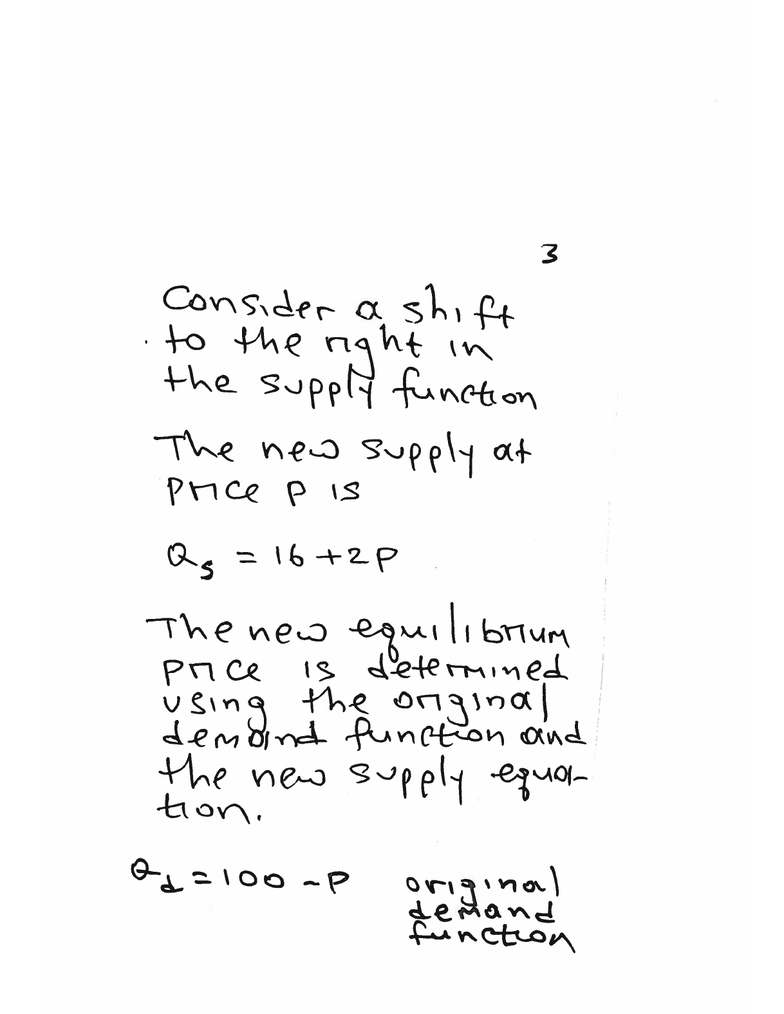 3
Consider a shift
to the right in
the supply function
The new supply at
price P is
Qs = 16 + 2P
The new equilibrium
price is determined
using the original
demand function and
the new supply equa-
tion.
Qd = 100 - P original
demand
function